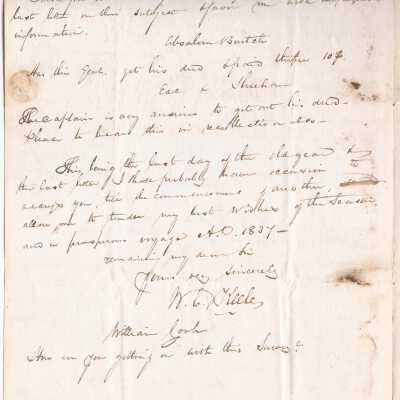 last letter on this subject favor me with
information.
Absalom
Has this Govt. got his deed
East
The Captain is very anxious to get out his deed—
Please to bear this in recollection also—
This, being the last day of the old year &
the last letter I shall probably have occasion to
address you, till the commencement of another,
allow me to tender my best Wishes of the Season
and a prosperous voyage A.D. 1837—
remaining my dear Sir
Yours very Sincerely
W. C.
William
How are you getting on with this